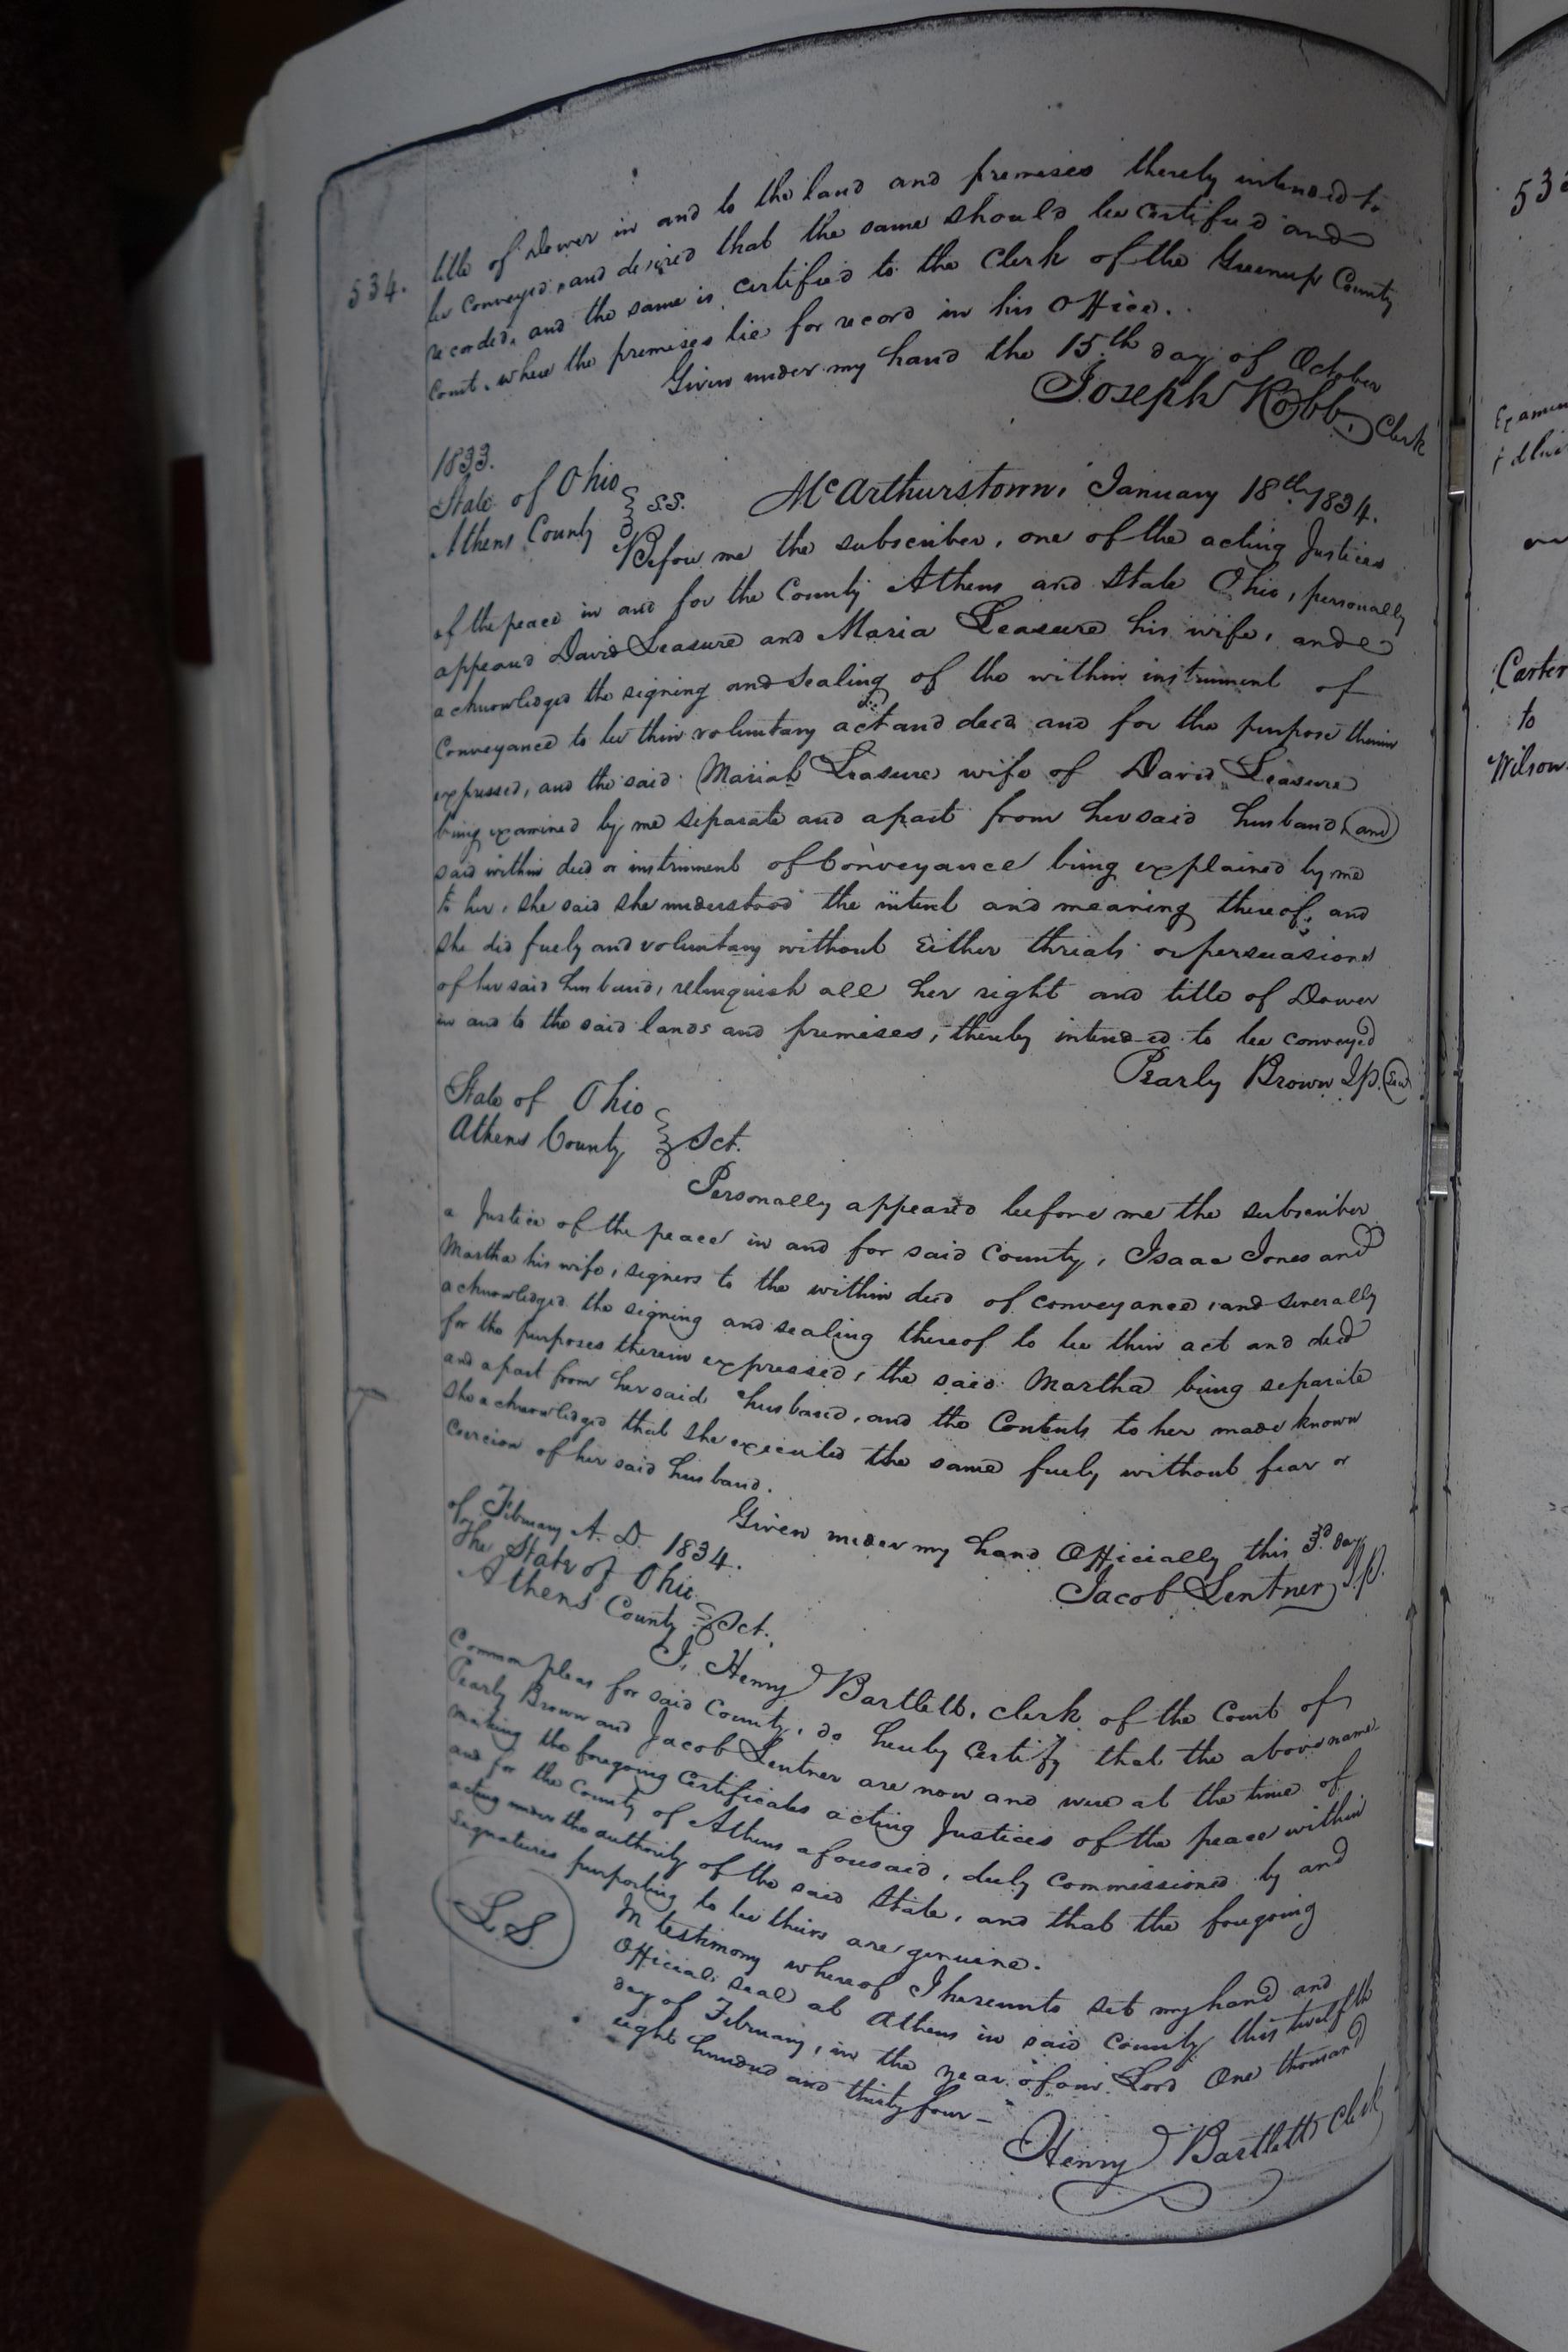 534.
title of Dower in and to the land and premises thereby intended to
be conveyed, and desired that the same should be certified and
recorded, and the same is certified to the Clerk of the Greenup County
Court, where the premises lie for record in his Office.
Given under my hand the 15th day of October
1833.
Joseph Robb, Clerk
State of Ohio
Athens County } S.S. McArthurstown, January 18th 1834.
Before me the subscriber, one of the acting Justices
of the peace in and for the County Athens and State Ohio, personally
appeard David Leasure and Maria Leasure his wife, and
acknowledged the signing and sealing of the within instrument of
Conveyance to be their voluntary act and deed and for the purpose therein
expressed, and the said Mariah Leasure wife of David Leasure
being examined by me separate and apart from her said husband, and
said within deed or instrument of Conveyance being explained by me
to her, she said she understood the intent and meaning thereof, and
she did freely and voluntary without Either threats or persuasion
of her said husband, relinquish all her right and title of Dower
in and to the said lands and premises, thereby intended to be conveyed
Pearly Brown J.P. Seal
State of Ohio
Athens County } Sct.
Personally appeared before me the subscriber
a Justice of the peace in and for said County, Isaac Jones and
Martha his wife, signers to the within deed of conveyance, and severally
acknowledged the signing and sealing thereof to be their act and deed
for the purposes therein expressed, the said Martha being separate
and apart from her said husband, and the Contents to her made known
she acknowledged that she executed the same freely without fear or
Coercion of her said husband.
Given under my hand Officially this 3d day
of February A. D. 1834.
Jacob Lentner J.P.
The State of Ohio
Athens County } Sct.
I, Henry Bartlett, clerk of the Court of
Common pleas for said County, do hereby Certify that the above name
Pearly Brown and Jacob Lentner are now and were at the time of
making the foregoing Certificates acting Justices of the peace within
and for the County of Athens aforesaid, duly Commissioned by and
acting under the authority of the said State, and that the foregoing
signatures purporting to be theirs are genuine.
L.S.
In testimony whereof I hereunto set my hand and
Official seal at Athens in said County, this twelfth
day of February, in the year of our Lord One thousand
eight hundred and thirty four -
Henry Bartlett Clerk
Carter
to
Wilson